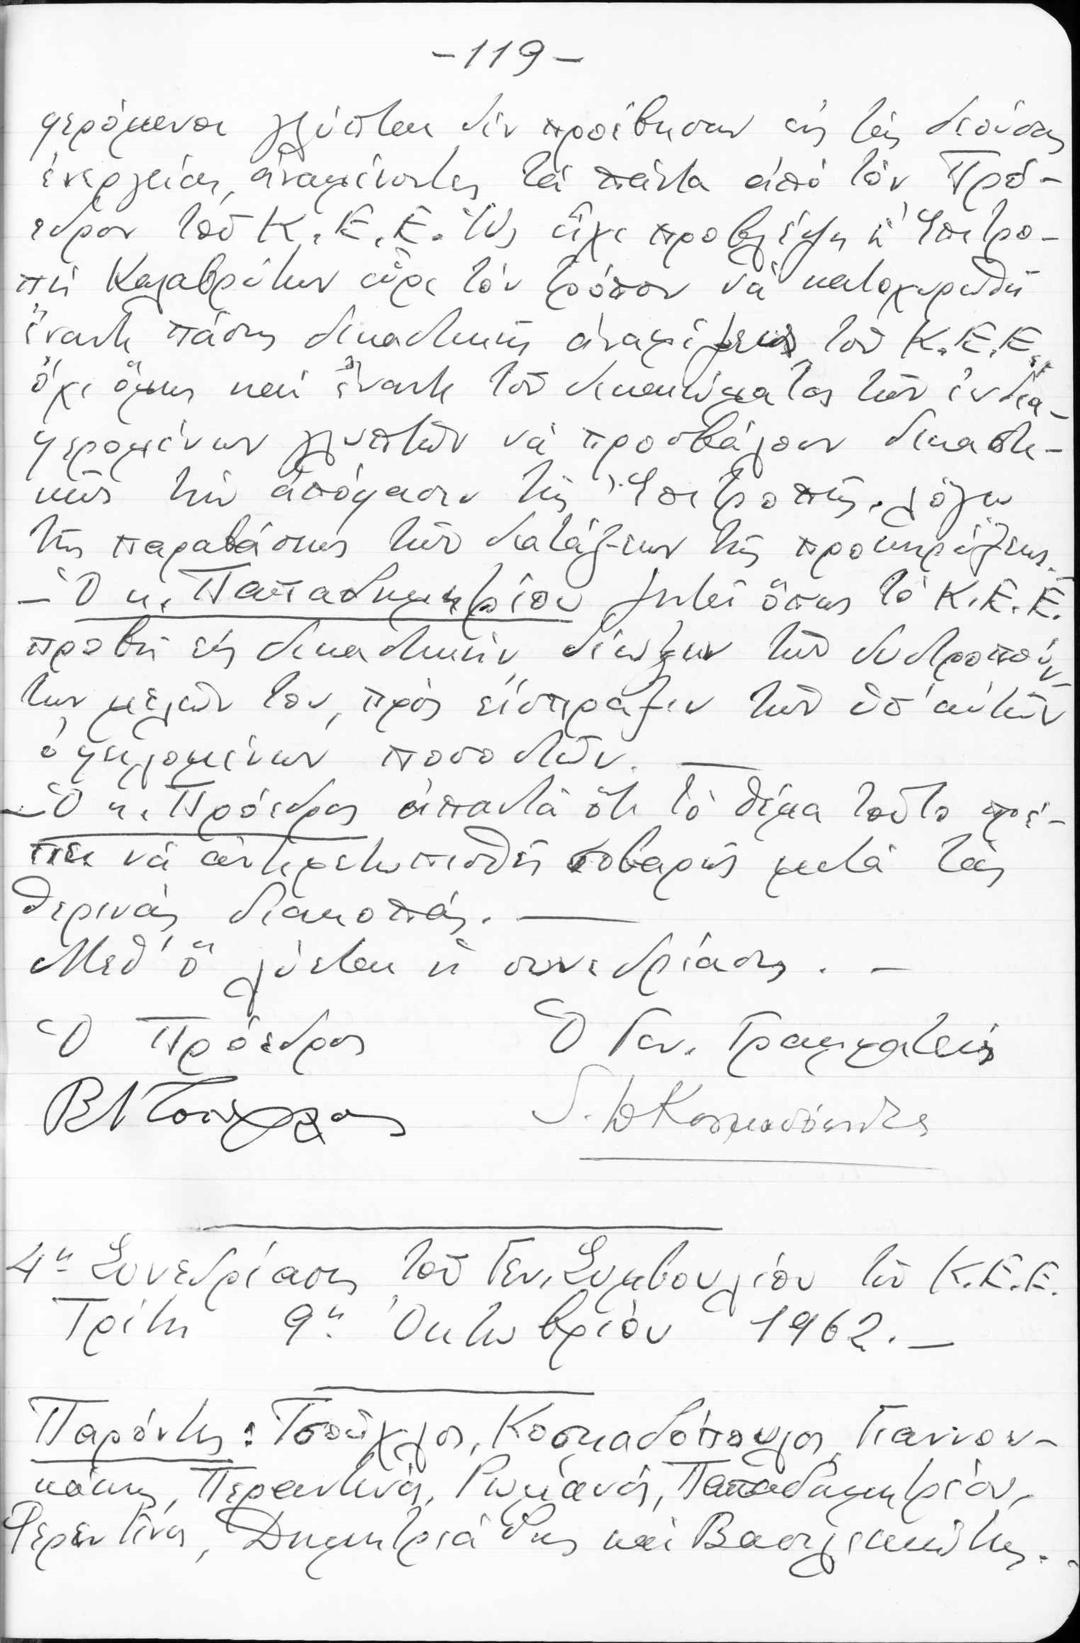 -119-
φερόμενοι γλύπται δέν προέβησαν εἰς τάς δεούσας
ἐνεργείας, ἀναμένοντες τά πάντα ἀπό τόν Πρό-
εδρον τοῦ Κ.Ε.Ε. Ὡς εἶχε προβλέψη ἡ Ἐπιτρο-
πή Καλαβρύτων εὗρε τόν τρόπον νά κατοχυρωθῆ
ἔναντι πάσης δικαστικῆς ἀναμίξεως τοῦ Κ.Ε.Ε.,
ὄχι ὅμως καί ἔναντι τοῦ δικαιώματος τῶν ἐνδια-
φερομένων γλυπτῶν νά προσβάλουν δικαστι-
κῶς τήν ἀπόφασιν τῆς Ἐπιτροπῆς, λόγω
τῆς παραβάσεως τῶν διατάξεων τῆς προκηρύξεως.-
- Ὁ κ. Παπαδημητρίου ζητεῖ ὅπως τό Κ.Ε.Ε.
προβῆ εἰς δικαστικήν δίωξιν τῶν δυστροπούν-
των μελῶν του, πρός εἴσπραξιν τῶν ὑπ' αὐτῶν
ὀφειλομένων ποσοστῶν. -
- Ὁ κ. Πρόεδρος ἀπαντᾶ ὅτι τό θέμα τοῦτο πρέ-
πει νά ἀντιμετωπισθῆ σοβαρῶς μετά τάς
θερινάς διακοπάς. -
Μεθ' ὅ λύεται ἡ συνεδρίασις. -
Ὁ Πρόεδρος Ὁ Γεν. Γραμματεύς
4η Συνεδρίασις τοῦ Γεν. Συμβουλίου τοῦ Κ.Ε.Ε.
Τρίτη 9η Ὀκτωβρίου 1962. -
Παρόντες: Τσοῦχλος, Κοσμαδόπουλος, Γιαννου-
κάκης, Περαντινός, Ρωμανός, Παπαδημητρίου,
Φερεντίνος, Δημητριάδης καί Βασιλικιώτης.